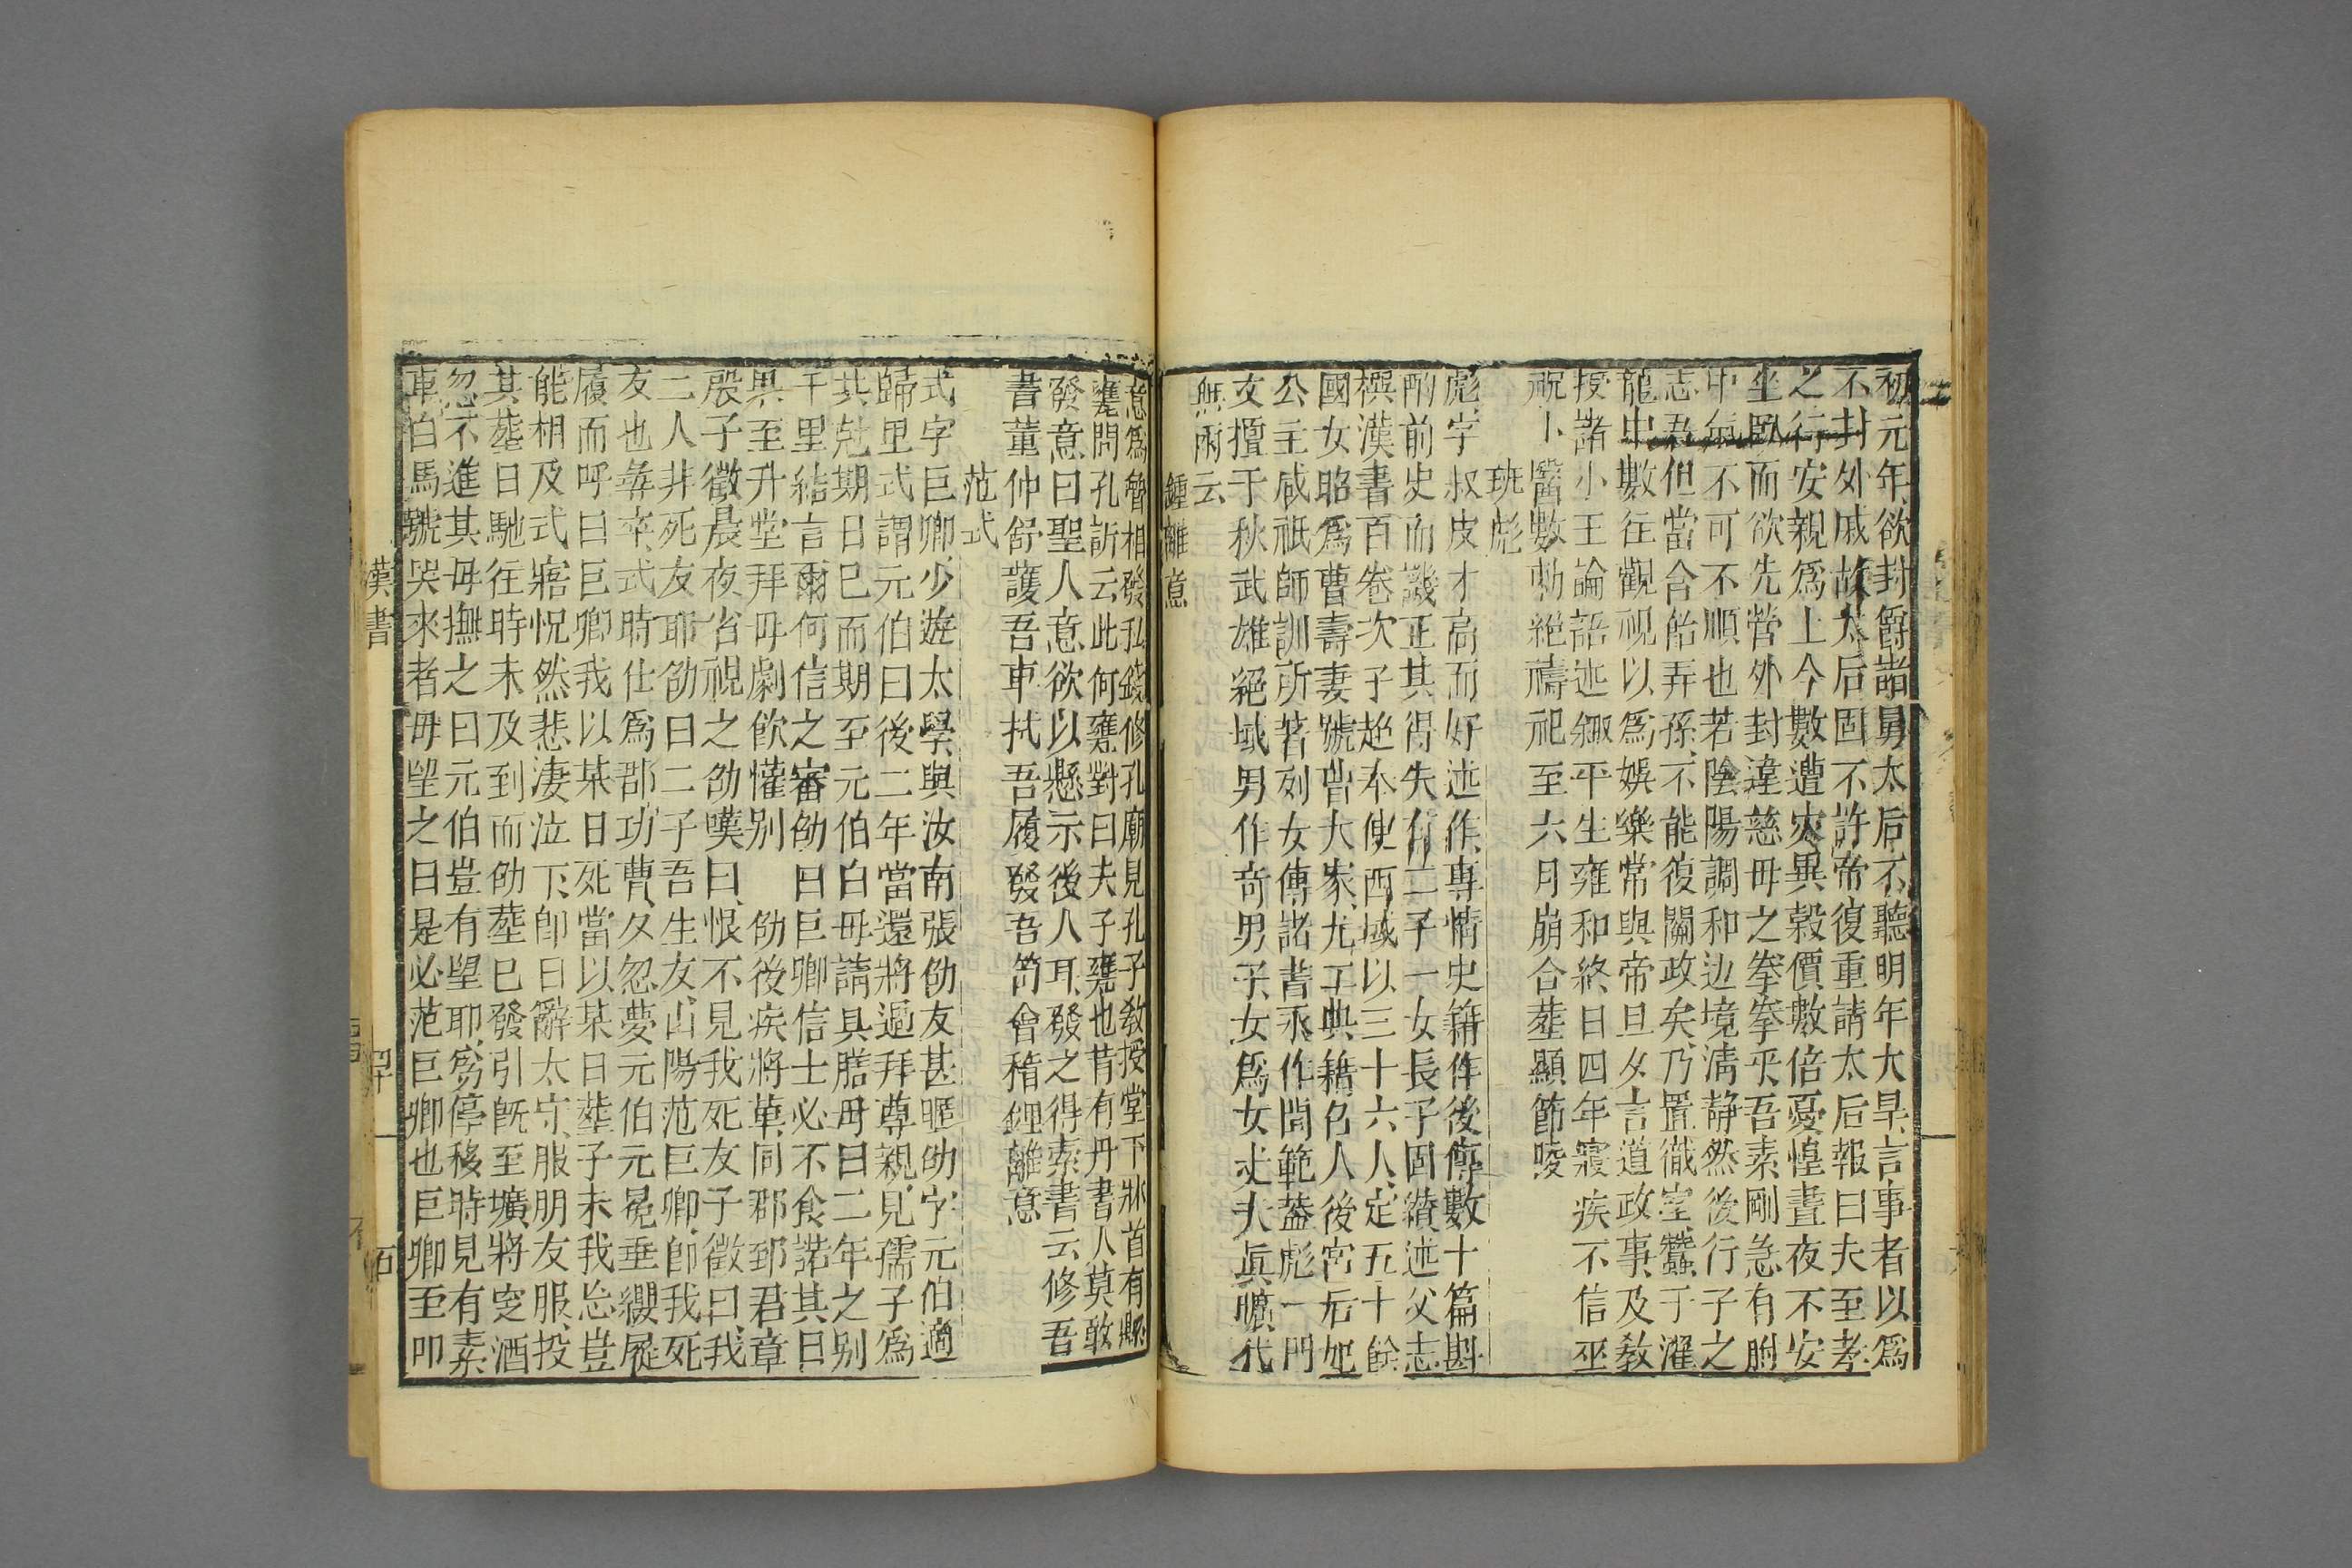 初元年欲封爵諸舅太后不聽明年大旱言事者以爲
不封外戚故太后固不許帝復重請太后報曰夫至孝
之行安親爲上今數遭灾異穀價數倍憂惶晝夜不安
坐臥而欲先營外封違慈母之拳拳乎吾素剛急有胷
中氣不可不順也若陰陽調和边境淸静然後行子之
志吾但當含飴弄孫不能復關政矣乃置織室蠶于濯
龍中數往觀視以爲娛樂常與帝旦夕言道政事及敎
授諸小王論語述叙平生雍和終日四年寢疾不信巫
祝卜醫數勑絕禱祀至六月崩合塟顯節陵
班彪
彪字叔皮才高而好述作專情史籍作後傳數十篇斟
酌前史而譏正其得失有二子一女長子固纉述父志
撰漢書百卷次子超奉使西域以三十六人定五十餘
國女昭爲曹壽妻號曹大家尤工典籍名人後宮后妃
公主咸祇師訓所著列女傳諸書永作閨範葢彪一門
文擅千秋武雄絕域男作奇男子女爲女丈夫眞曠代
無兩云
鍾離意
意爲魯相發私錢修孔廟見孔子敎授堂下牀首有懸
甕問孔訢云此何甕對曰夫子甕也昔有丹書人莫敢
發意曰聖人意欲以懸示後人耳發之得素書云修吾
書董仲舒護吾車拭吾履發吾笥會稽鍾離意
范式
式字巨卿少遊太學與汝南張劭友甚暱劭字元伯適
歸里式謂元伯曰後二年當還將過拜尊親見孺子爲
共尅期日已而期至元伯白母請具膳母曰二年之别
千里結言爾何信之審劭曰巨卿信士必不食諾其日
果至升堂拜母劇飲懽别劭後疾將革同郡郅君章
殷子徵晨夜省視之劭嘆曰恨不見我死友子徵曰我
二人非死友耶劭曰二子吾生友山陽范巨卿卽我死
友也尋卒式時仕爲郡功曹夕忽夢元伯元冕垂纓屣
履而呼曰巨卿我以某日死當以某日塟子未我忘豈
能相及式寤怳然悲淒泣下卽日辭太守服朋友服投
其塟日馳往時未及到而劭塟已發引旣至壙將窆酒
忽不進其母撫之曰元伯豈有望耶爲停移時見有素
車白馬號哭來者母望之曰是必范巨卿也巨卿至叩
漢書